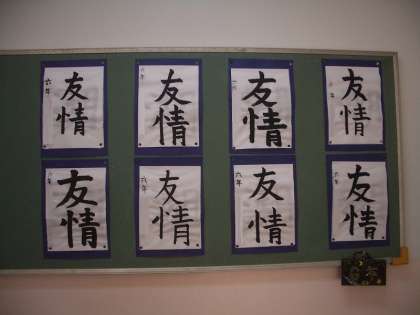 友情
六年
友情
六年
友情
友情
年
友情
友情
六年
友情
六年
友情
六年